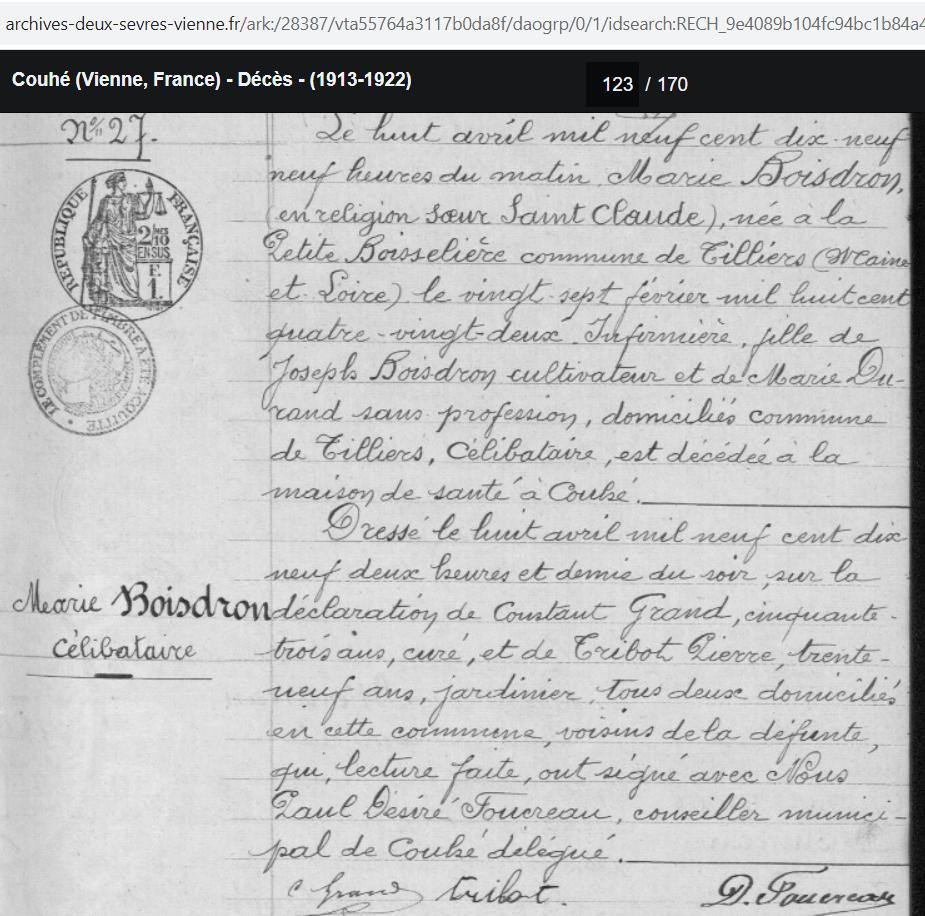 archives-deux-sevres-vienne.fr/ark:/28387/vta55764a3117b0da8f/daogrp/0/1/idsearch:RECH_9e4089b104fc94bc1b84a4
Couhé (Vienne, France) - Décès - (1913-1922)
123 / 170
N° 27.
RÉPUBLIQUE FRANÇAISE
2/10
EN SUS
E
1.
LE COMPLÉMENT DE TIMBRE A ÉTÉ ACQUITTÉ
Marie Boisdron
Célibataire
Le huit avril mil neuf cent dix-neuf
neuf heures du matin, Marie Boisdron,
(en religion sœur Saint Claude), née à la
Petite Boisselière commune de Tilliers (Maine
et Loire) le vingt-sept février mil huit cent
quatre-vingt-deux. Infirmière, fille de
Joseph Boisdron cultivateur et de Marie Du-
rand sans profession, domiciliés commune
de Tilliers, Célibataire, est décédée à la
maison de santé à Couhé.
Dressé le huit avril mil neuf cent dix
neuf deux heures et demie du soir, sur la
déclaration de Constant Grand, cinquante-
trois ans, curé, et de Tribot Pierre, trente-
neuf ans, jardinier, tous deux domiciliés
en cette commune, voisins de la défunte,
qui, lecture faite, ont signé avec Nous
Paul Désiré Foucreau, conseiller munici-
pal de Couhé délégué.
C Grand Tribot. D. Foucreau